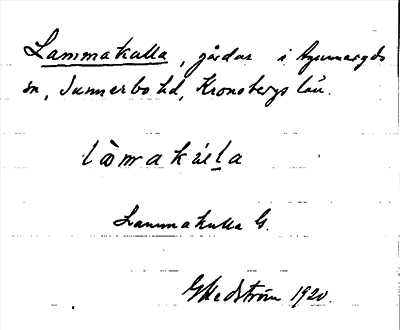 Lammakulla, gårdar i Agunnaryds
sn, Sunnerbo hd, Kronobergs län.
Lammakulla G.
G Hedström 1920.